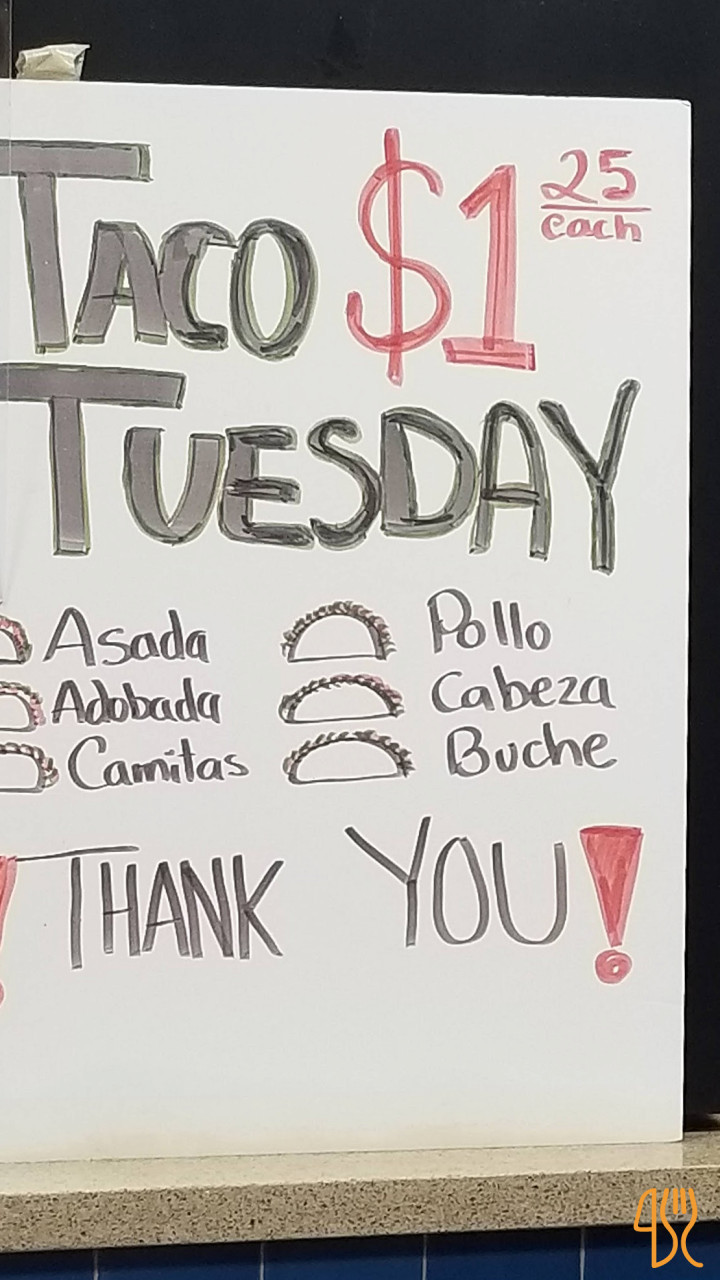 TACO $1 25 each
TUESDAY
Asada Pollo
Adobada Cabeza
Carnitas Buche
! THANK YOU!